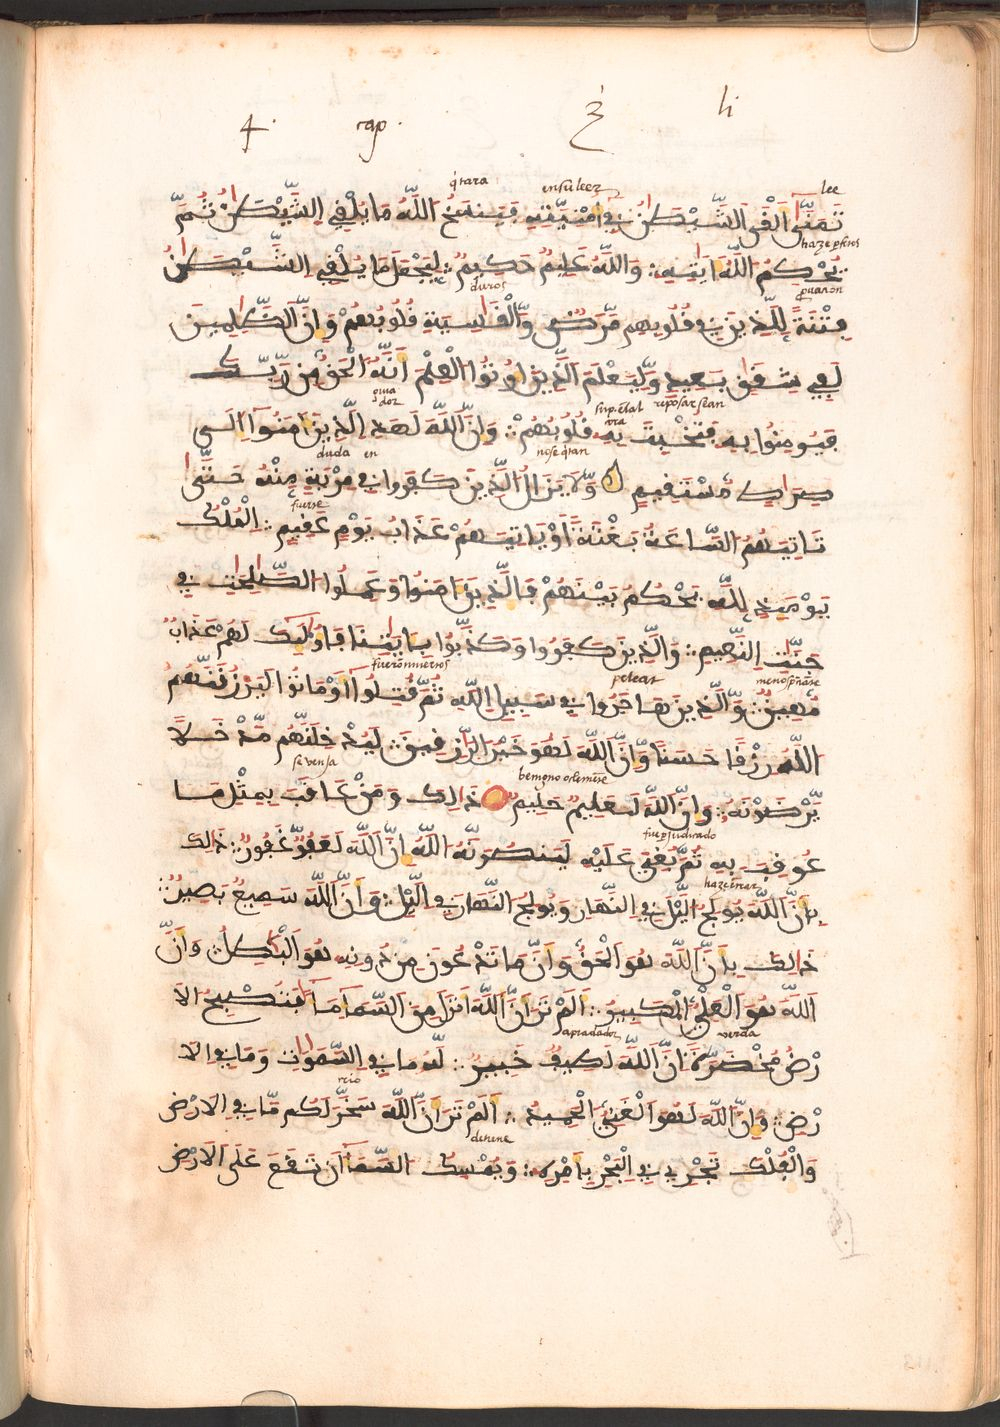 li 3 cap. 4.
lee ensu leer qtara
تَمَنَّىٰ أَلْقَى الشَّيْطَٰنُ فِي أُمْنِيَّتِهِ فَيَنسَخُ اللَّهُ مَا يُلْقِي الشَّيْطَٰنُ ثُمَّ
يُحْكِمُ اللَّهُ ءَايَٰتِهِ وَاللَّهُ عَلِيمٌ حَكِيمٌ لِيَجْعَلَ مَا يُلْقِي الشَّيْطَٰنُ
duros
فِتْنَةً لِلَّذِينَ فِي قُلُوبِهِم مَّرَضٌ وَالْقَاسِيَةِ قُلُوبُهُمْ وَإِنَّ الظَّٰلِمِينَ
لَفِي شِقَاقٍ بَعِيدٍ وَلِيَعْلَمَ الَّذِينَ أُوتُوا الْعِلْمَ أَنَّهُ الْحَقُّ مِن رَّبِّكَ
reposar sean guiador
فَيُومِنُوا بِهِ فَتُخْبِتَ لَهُ قُلُوبُهُمْ وَإِنَّ اللَّهَ لَهَادِ الَّذِينَ ءَامَنُوا إِلَىٰ
nose qtan duda en
صِرَٰطٍ مُّسْتَقِيمٍ وَلَا يَزَالُ الَّذِينَ كَفَرُوا فِي مِرْيَةٍ مِنْهُ حَتَّىٰ
fuerte
تَاتِيَهُمُ السَّاعَةُ بَغْتَةً أَوْ يَاتِيَهُمْ عَذَابُ يَوْمٍ عَقِيمٍ الْمُلْكُ
يَوْمَئِذٍ لِلَّهِ يَحْكُمُ بَيْنَهُمْ فَالَّذِينَ ءَامَنُوا وَعَمِلُوا الصَّٰلِحَٰتِ فِي
جَنَّٰتِ النَّعِيمِ وَالَّذِينَ كَفَرُوا وَكَذَّبُوا بِـَٔايَٰتِنَا فَأُولَٰئِكَ لَهُمْ عَذَابٌ
pelear fueron muertos
مُّهِينٌ وَالَّذِينَ هَاجَرُوا فِي سَبِيلِ اللَّهِ ثُمَّ قُتِلُوا أَوْ مَاتُوا لَيَرْزُقَنَّهُمُ
اللَّهُ رِزْقًا حَسَنًا وَإِنَّ اللَّهَ لَهُوَ خَيْرُ الرَّٰزِقِينَ لَيُدْخِلَنَّهُم مَّدْخَلًا
se vensa
يَرْضَوْنَهُ وَإِنَّ اللَّهَ لَعَلِيمٌ حَلِيمٌ ذَٰلِكَ وَمَنْ عَاقَبَ بِمِثْلِ مَا
عُوقِبَ بِهِ ثُمَّ بُغِيَ عَلَيْهِ لَيَنصُرَنَّهُ اللَّهُ إِنَّ اللَّهَ لَعَفُوٌّ غَفُورٌ ذَٰلِكَ
بِأَنَّ اللَّهَ يُولِجُ الَّيْلَ فِي النَّهَارِ وَيُولِجُ النَّهَارَ فِي الَّيْلِ وَأَنَّ اللَّهَ سَمِيعٌ بَصِيرٌ
ذَٰلِكَ بِأَنَّ اللَّهَ هُوَ الْحَقُّ وَأَنَّ مَا تَدْعُونَ مِن دُونِهِ هُوَ الْبَٰطِلُ وَأَنَّ
اللَّهَ هُوَ الْعَلِيُّ الْكَبِيرُ أَلَمْ تَرَ أَنَّ اللَّهَ أَنزَلَ مِنَ السَّمَاءِ مَاءً فَتُصْبِحُ الْأَ
verda
رْضُ مُخْضَرَّةً إِنَّ اللَّهَ لَطِيفٌ خَبِيرٌ لَهُ مَا فِي السَّمَٰوَٰتِ وَمَا فِي الْأَ
رْضِ وَإِنَّ اللَّهَ لَهُوَ الْغَنِيُّ الْحَمِيدُ أَلَمْ تَرَ أَنَّ اللَّهَ سَخَّرَ لَكُم مَّا فِي الْأَرْضِ
detiene
وَالْفُلْكَ تَجْرِي فِي الْبَحْرِ بِأَمْرِهِ وَيُمْسِكُ السَّمَاءَ أَن تَقَعَ عَلَى الْأَرْضِ